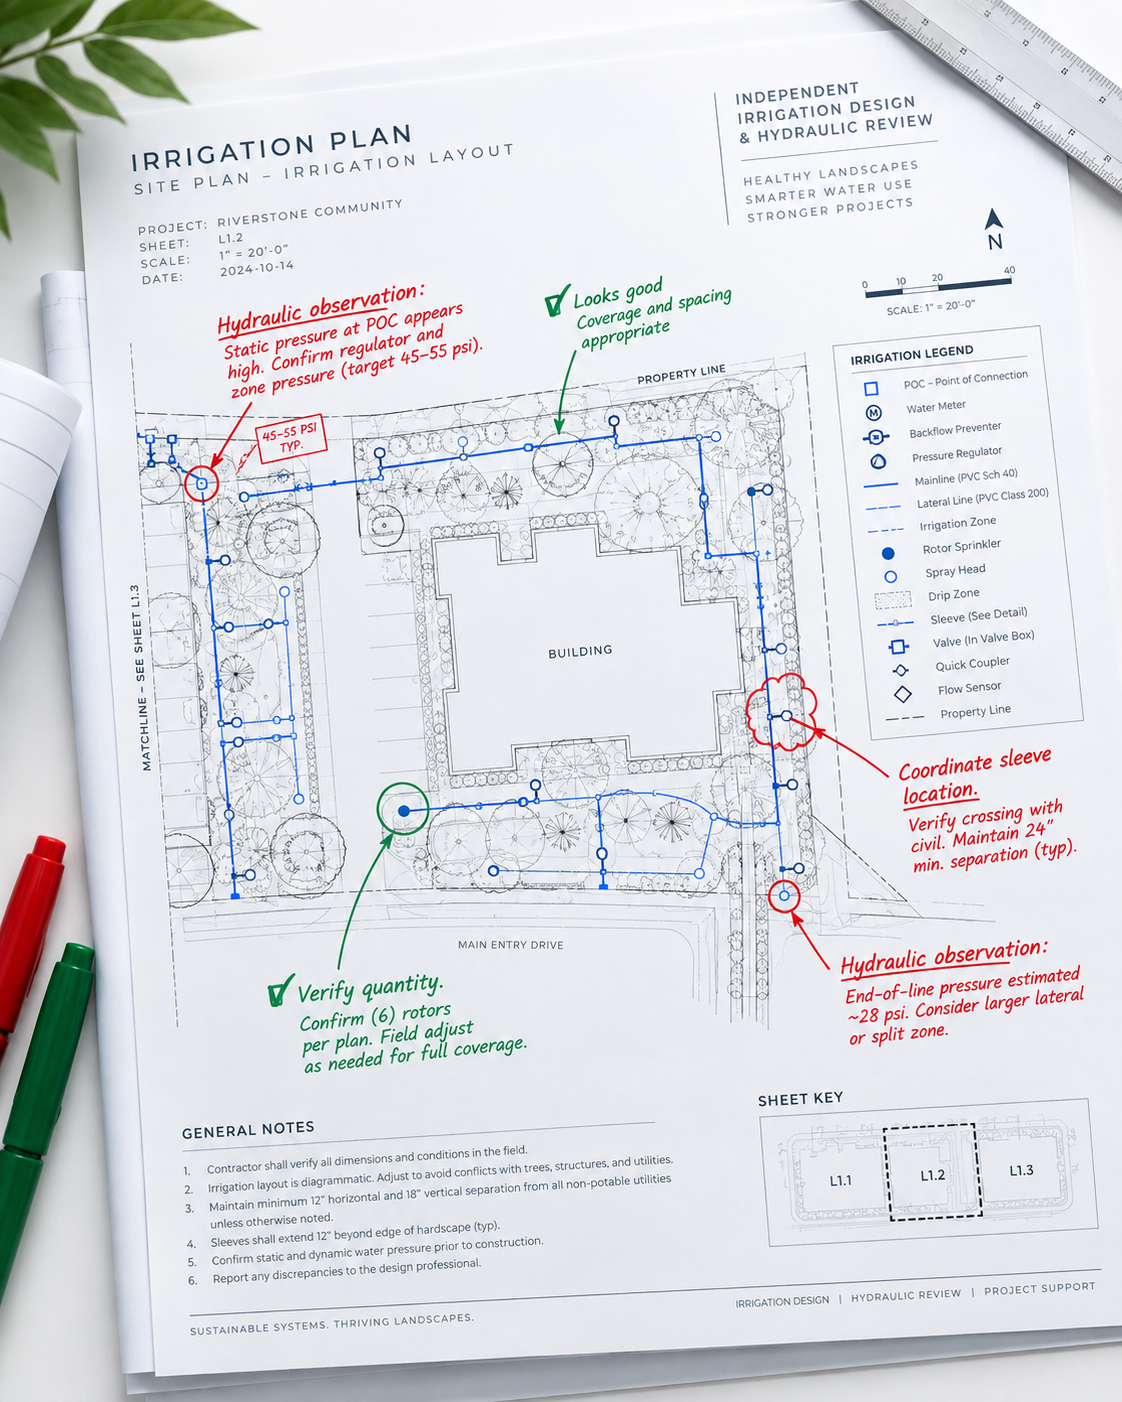 IRRIGATION PLAN
SITE PLAN – IRRIGATION LAYOUT
PROJECT: RIVERSTONE COMMUNITY
SHEET: L1.2
SCALE: 1" = 20'-0"
DATE: 2024-10-14
INDEPENDENT
IRRIGATION DESIGN
& HYDRAULIC REVIEW
HEALTHY LANDSCAPES
SMARTER WATER USE
STRONGER PROJECTS
N
0 10 20 40
SCALE: 1" = 20'-0"
Hydraulic observation:
Static pressure at POC appears
high. Confirm regulator and
zone pressure (target 45–55 psi).
Looks good
Coverage and spacing
appropriate
45–55 PSI
TYP.
PROPERTY LINE
MATCHLINE – SEE SHEET L1.3
BUILDING
MAIN ENTRY DRIVE
IRRIGATION LEGEND
POC – Point of Connection
M
Water Meter
Backflow Preventer
Pressure Regulator
Mainline (PVC Sch 40)
Lateral Line (PVC Class 200)
Irrigation Zone
Rotor Sprinkler
Spray Head
Drip Zone
Sleeve (See Detail)
Valve (In Valve Box)
Quick Coupler
Flow Sensor
Property Line
Coordinate sleeve
location.
Verify crossing with
civil. Maintain 24"
min. separation (typ).
Hydraulic observation:
End-of-line pressure estimated
~28 psi. Consider larger lateral
or split zone.
Verify quantity.
Confirm (6) rotors
per plan. Field adjust
as needed for full coverage.
GENERAL NOTES
1. Contractor shall verify all dimensions and conditions in the field.
2. Irrigation layout is diagrammatic. Adjust to avoid conflicts with trees, structures, and utilities.
3. Maintain minimum 12" horizontal and 18" vertical separation from all non-potable utilities
unless otherwise noted.
4. Sleeves shall extend 12" beyond edge of hardscape (typ).
5. Confirm static and dynamic water pressure prior to construction.
6. Report any discrepancies to the design professional.
SHEET KEY
L1.1
L1.2
L1.3
SUSTAINABLE SYSTEMS. THRIVING LANDSCAPES.
IRRIGATION DESIGN | HYDRAULIC REVIEW | PROJECT SUPPORT